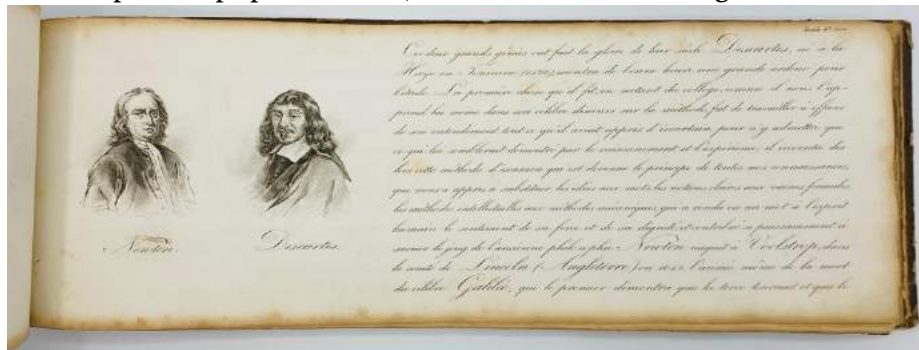 Newton.
Descartes.
Ces deux grands génies ont fait la gloire de leur siècle Descartes, né à la
Haye en Touraine montra de bonne heure une grande ardeur pour
l'étude. La première chose qu'il fit en sortant du collège, comme il nous l'ap-
prend lui même dans son célèbre discours sur la méthode, fut de travailler à effacer
de son entendement tout ce qu'il avait appris d'incertain, pour n'y admettre que
ce qui lui semblerait démontré par le raisonnement et l'expérience; il inventa dès
lors cette méthode d'examen qui est devenue le principe de toutes nos connaissances,
qui nous a appris à substituer les idées aux mots, les notions claires aux vaines formules
les méthodes intellectuelles aux méthodes mécaniques, qui a rendu en un mot à l'esprit
humain le sentiment de sa force et de sa dignité, et contribué si puissamment à
secouer le joug de l'ancienne philosophie. Newton naquit à Woolstrop, dans
le comté de Lincoln (Angleterre) en 1642 l'année même de la mort
du célèbre Galilée, qui le premier démontra que la terre tournait et que le